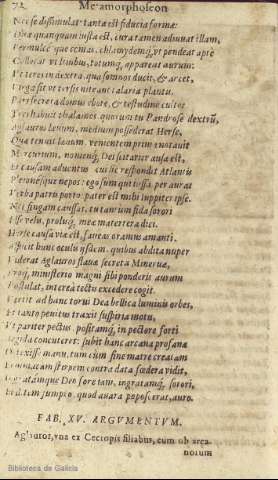 72 Metamorphoseon
Nec se dissimulat: tanta est fiducia formæ:
Quæ quanquam iusta est, cura tamen adiuuat illam,
Permulcetque comas, chlamydemq; vt pendeat aptè
Collocat vt limbus, totumq; appareat aurum:
Vt teres in dextra, qua somnos ducit, & arcet,
Virga sit vt tersis niteant talaria plantis.
Pars secreta domus ebore, & testudine cultos
Tres habuit thalamos quorum tu Pandrose dextrũ,
Aglauros læuum, medium possederat Herse,
Quæ tenuit læuum, venientem prima notauit
Mercurium, nomenq; Dei scitarier ausa est,
Et causam aduentus cui sic respondit Atlantis
Pleionesque nepos: ego sum qui iussa per auras
Verba patris porto: pater est mihi iuppiter ipse.
Nec fingam caussas, tu tantum fida sorori
Esse velis, prolisq; meæ matertera dici.
Herse causa viæ est, faueas oramus amanti.
Aspicit hunc oculis ijsdem, quibus abdita nuper
Viderat Aglauros flauæ secreta Mineruæ,
Proq; ministerio magni sibi ponderis aurum
Postulat, interea tectis excedere cogit.
Vertit ad hanc torui Dea bellica luminis orbes,
Et tanto penitus traxit suspiria motu,
Vt pariter pectus, positamq; in pectore forti
Aegida concuteret: subit hanc arcana profana
Detexisse manu, tum cum sine matre creatam
Lemnicolam stirpem contra data fœdera vidit,
Et gratamque Deo fore iam, ingratamq; sorori,
Et ditem sumpto, quod auara poposcerat, auro.
FAB. XV. ARGVMENTVM.
Aglauros, vna ex Cecropis filiabus, cum ob arca
norum
Biblioteca de Galicia